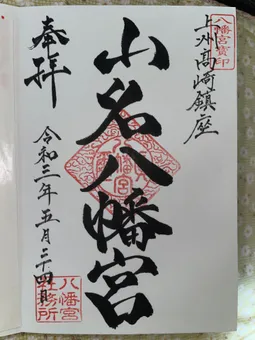 八幡宮寶印
上州高崎鎮座
山名八幡宮
八幡宮
奉拝
令和三年五月二十四日
八幡宮
社務所